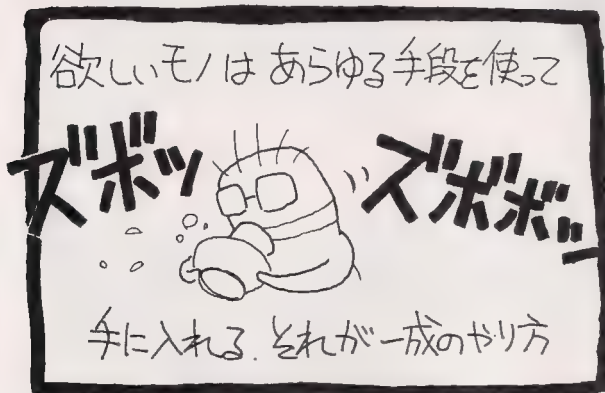 欲しいモノは あらゆる手段を使って
ズボッ
ズボボボッ
手に入れる. それが一成のやり方